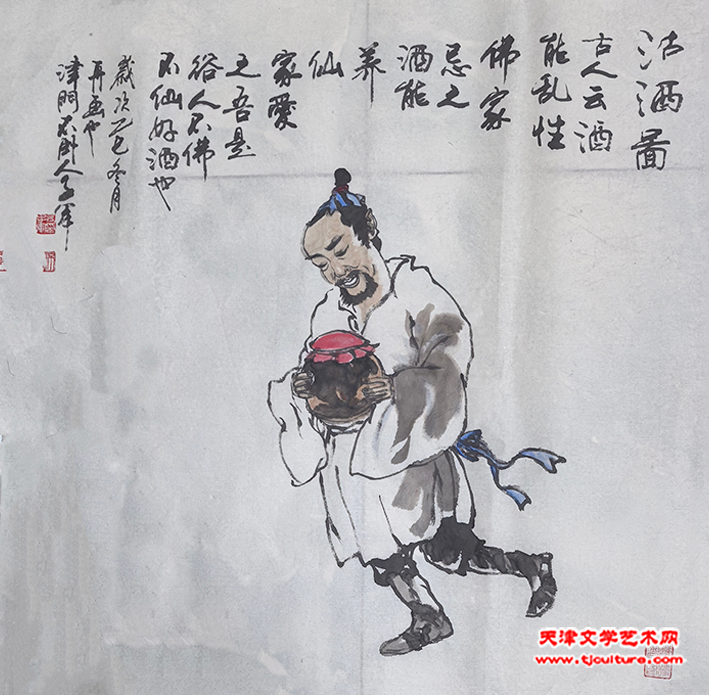 沽酒圖
古人云酒
能乱性
佛家
忌之
酒能
养
仙
家愛
之吾是
俗人不佛
不仙好酒也
歲次乙巳冬月
再画也
津門
天津文学艺术网
www.tjculture.com